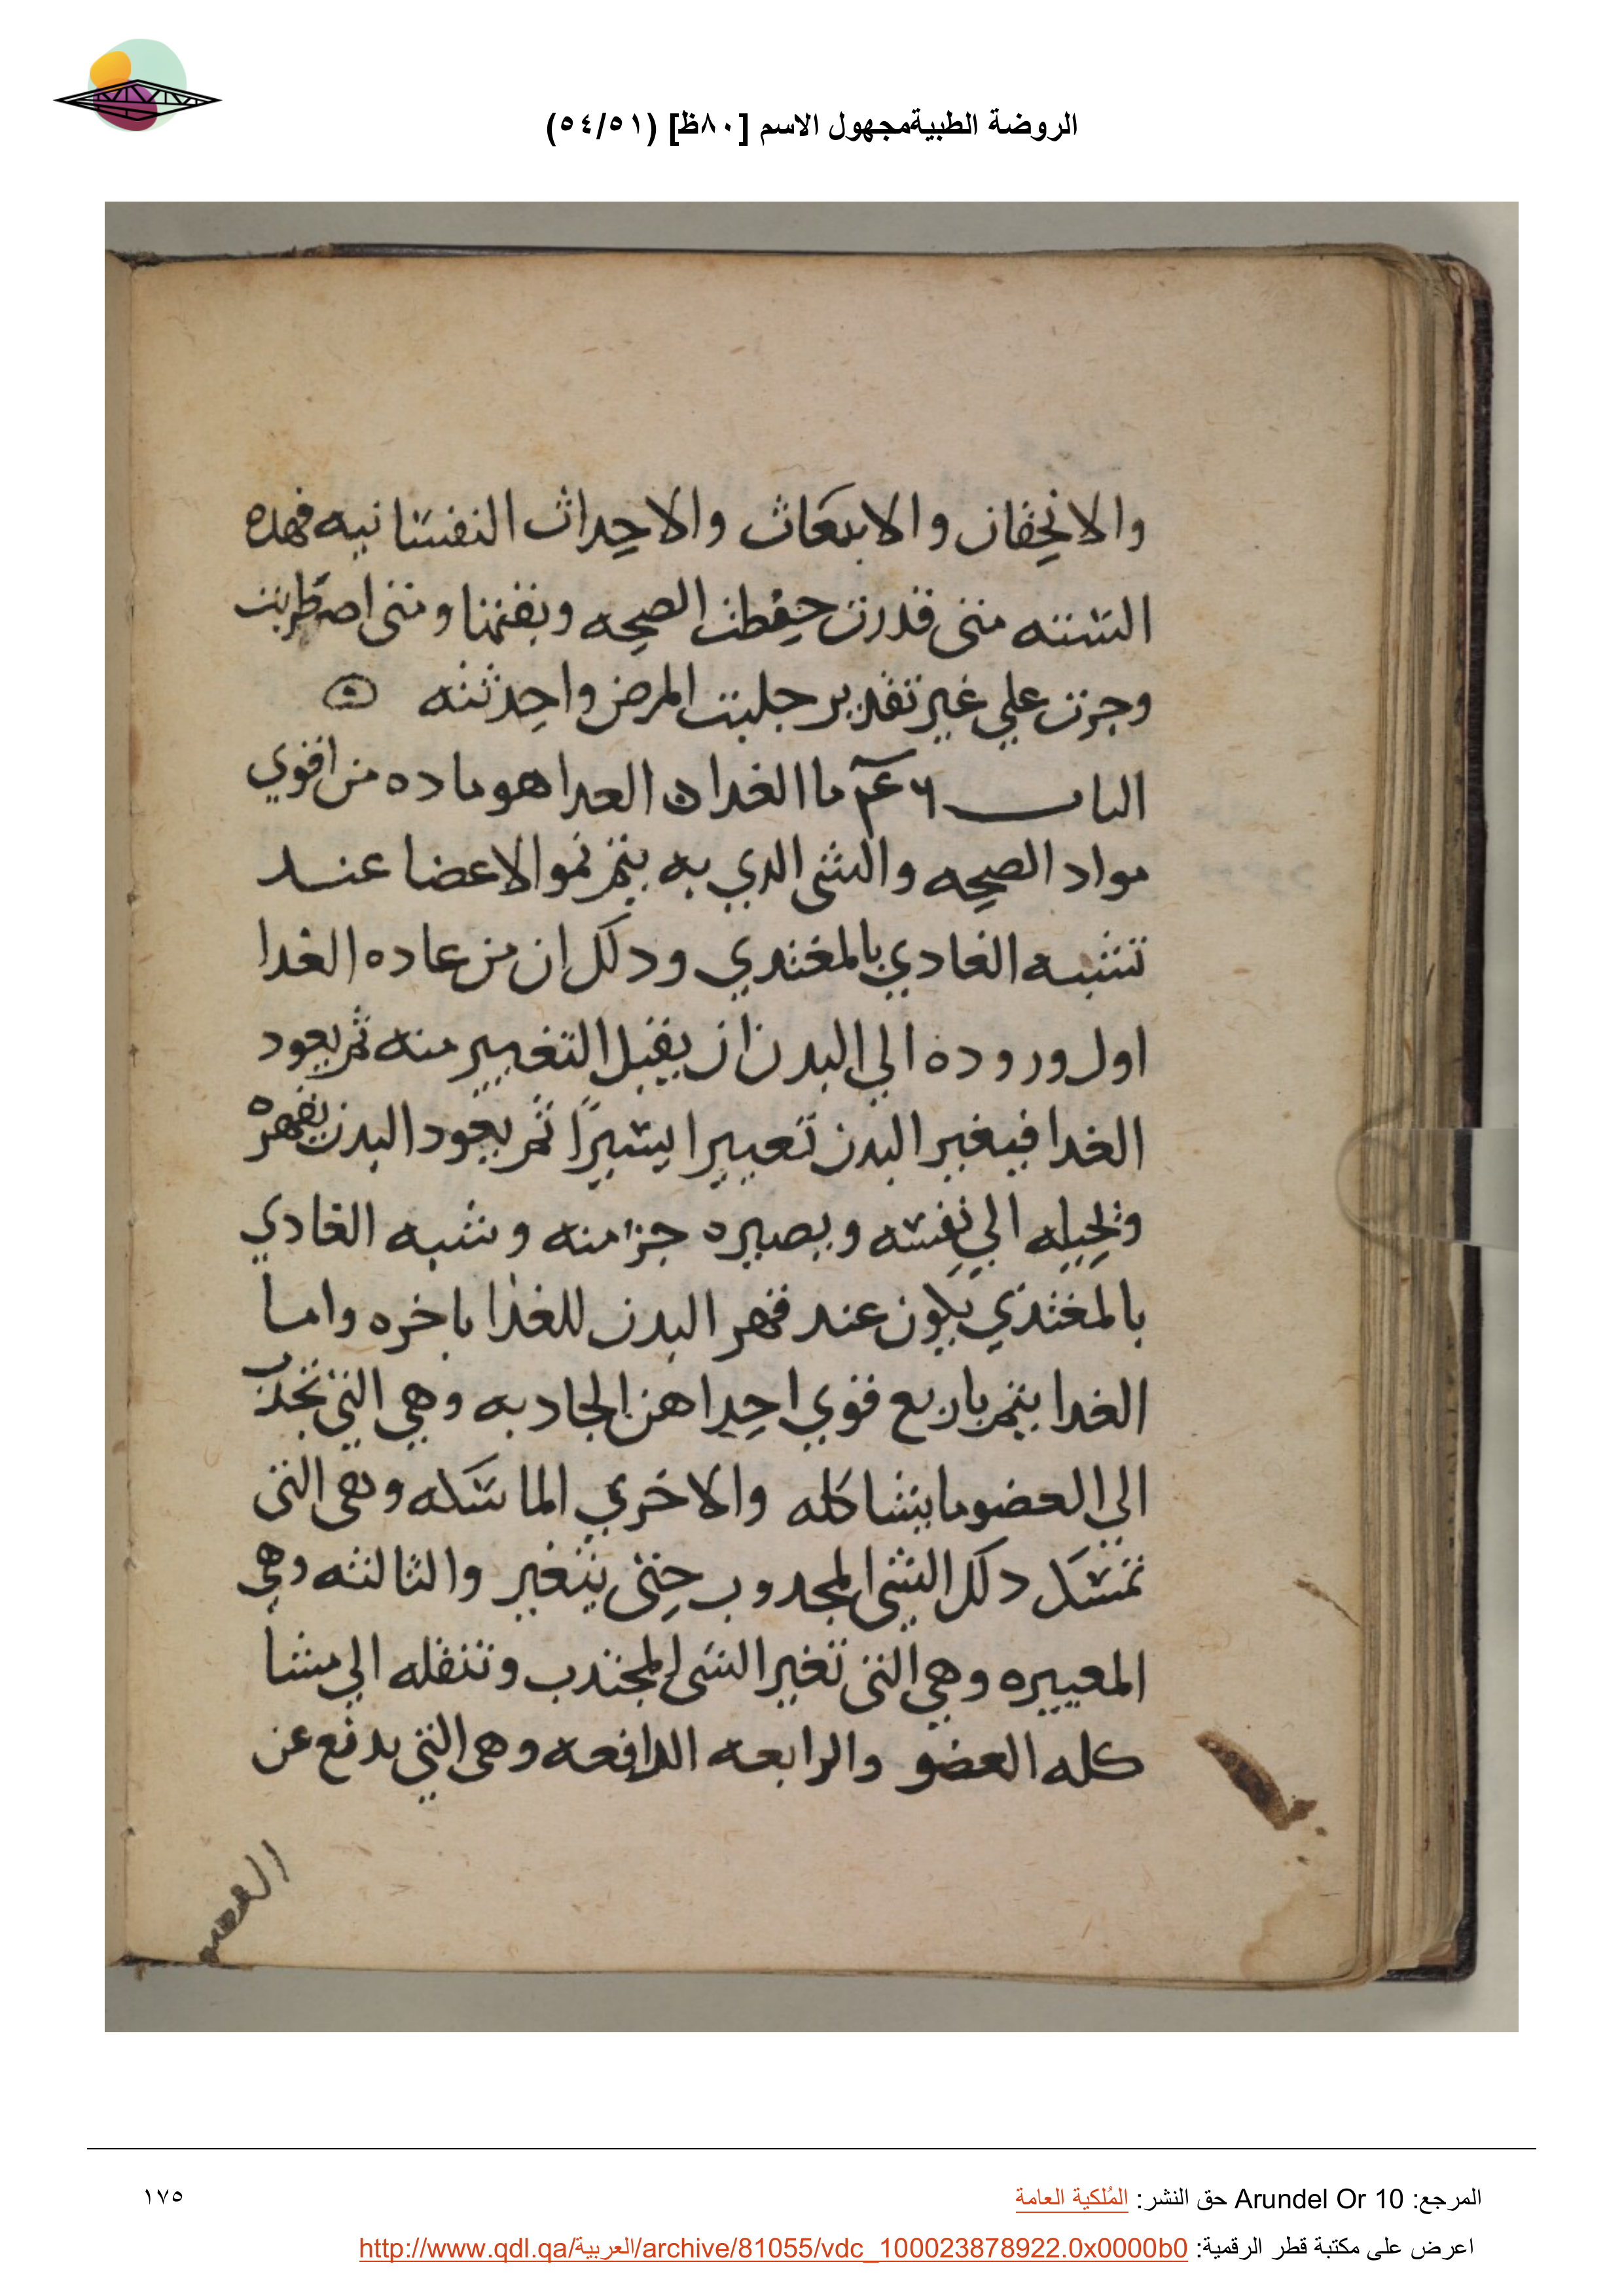 الروضة الطبيةمجهول الاسم [٨٠ظ] (٥٤/٥١)
والانحقان والابتعاث والاحداث النفسانيه فهده
الستته متى قدرت حفظت الصحه وبقتها ومتى اصطربت
وجرت علي غير تقدير جلبت المرض واحدثته
الباب ما الغدا العدا هو ماده من اقوي
مواد الصحه والشى الدي به يتم نمو الاعضا عند
تشبه الغادي بالمغتدي ودلك ان من عاده الغدا
اول وروده الي البدن ان يقبل التغيير منه ثم يعود
الغدا فيغير البدن تعييرا يسيرًا ثم يعود البدن يقهره
ويحيله الي نفسه ويصيره جزا منه وتشبه الغادي
بالمغتذي يكون عند قهر البدن للغذا باخره واما
الغدا يتم باربع قوي احداهن الجادبه وهي التي تجدب
الي العضو ما يشاكله والاخري الماسكه وهى التى
تمسك دلك الشى المجدوب حتى يتغير والثالثه وهي
المعييره وهي التى تغير الشى المجتدب وتنقله الي مشا
كله العضو والرابعه الدافعه وهى التي يدفع عن
العضو
المرجع: Arundel Or 10 حق النشر: المُلكية العامة
١٧٥
اعرض على مكتبة قطر الرقمية: http://www.qdl.qa/العربية/archive/81055/vdc_100023878922.0x0000b0